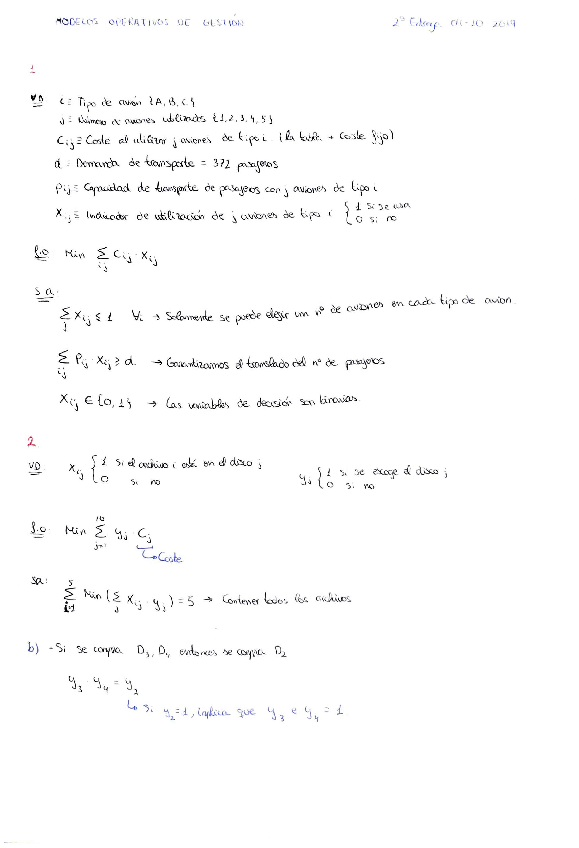 MODELOS OPERATIVOS DE GESTIÓN
2º Entrega 04-10 2019
1
VD i ≡ Tipo de avión {A, B, C}
j ≡ Número de aviones utilizados {1,2,3,4,5}
Cij ≡ Coste al utilizar j aviones de tipo i (la tabla + coste fijo)
d ≡ Demanda de transporte = 372 pasajeros
Pij ≡ Capacidad de transporte de pasajeros con j aviones de tipo i
Xij ≡ Indicador de utilización de j aviones de tipo i { 1 si se usa
0 si no
f.o Min Σij Cij · Xij
s.a.
Σj Xij ≤ 1 ∀i → Solamente se puede elegir un nº de aviones en cada tipo de avion.
Σij Pij · Xij ≥ d. → Garantizamos el translado del nº de pasajeros
Xij ∈ {0,1} → Las variables de decisión son binarias.
2
VD. Xij { 1 si el archivo i está en el disco j
0 si no
yj { 1 si se escoge el disco j
0 si no
f.o. Min Σ yj Cj
j=1
↳ Coste
sa: Σ Min (Σj Xij · yj) = 5 → Contener todos los archivos
b) - Si se compra D3, D4 entonces se compra D2
y3 · y4 = y2
↳ si y2 = 1, implica que y3 e y4 = 1